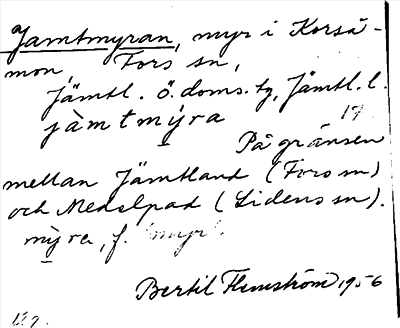 Jamtmyran, myr i Korså-
mon, Fors sn,
Jämtl. ö. doms. tg, Jämtl. l.
jàmtmy̆ra 19
På gränsen
mellan Jämtland (Fors sn)
och Medelpad (Lidens sn).
my̆ra, f. 'myr'.
Bertil Flemström 1956